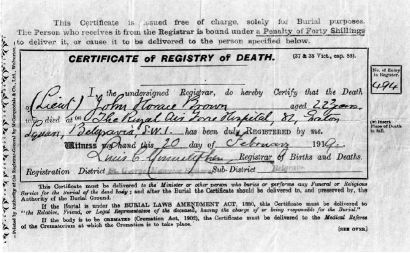 This Certificate is issued free of charge, solely for Burial purposes.
The Person who receives it from the Registrar is bound under a Penalty of Forty Shillings
to deliver it, or cause it to be delivered to the person specified below.
CERTIFICATE OF REGISTRY OF DEATH. (37 & 38 Vict., cap. 88).
No. of Entry in Register.
494
I the undersigned Registrar, do hereby Certify that the Death
of (Lieut) John Horace Brown aged 22 years
who died at The Royal Air Force Hospital, 82, Eaton
Square, Belgravia, S.W.1. has been duly REGISTERED by me.
(a) Insert Place of Death in full.
Witness my hand this 20 day of February 1919.
Louis C. Registrar of Births and Deaths.
Registration District Sub-District Belgrave
This Certificate must be delivered to the Minister or other person who buries or performs any Funeral or Religious
Service for the burial of the dead body; and after the Burial the Certificate should be delivered to, and preserved by, the
Authority of the Burial Ground.
If the Burial is under the BURIAL LAWS AMENDMENT ACT, 1880, this Certificate must be delivered to
"the Relation, Friend, or Legal Representative of the deceased, having the charge of or being responsible for the Burial."
If the body is to be CREMATED (Cremation Act, 1902), the Certificate must be delivered to the Medical Referee
of the Crematorium at which the Cremation is to take place.
(SEE OVER.)